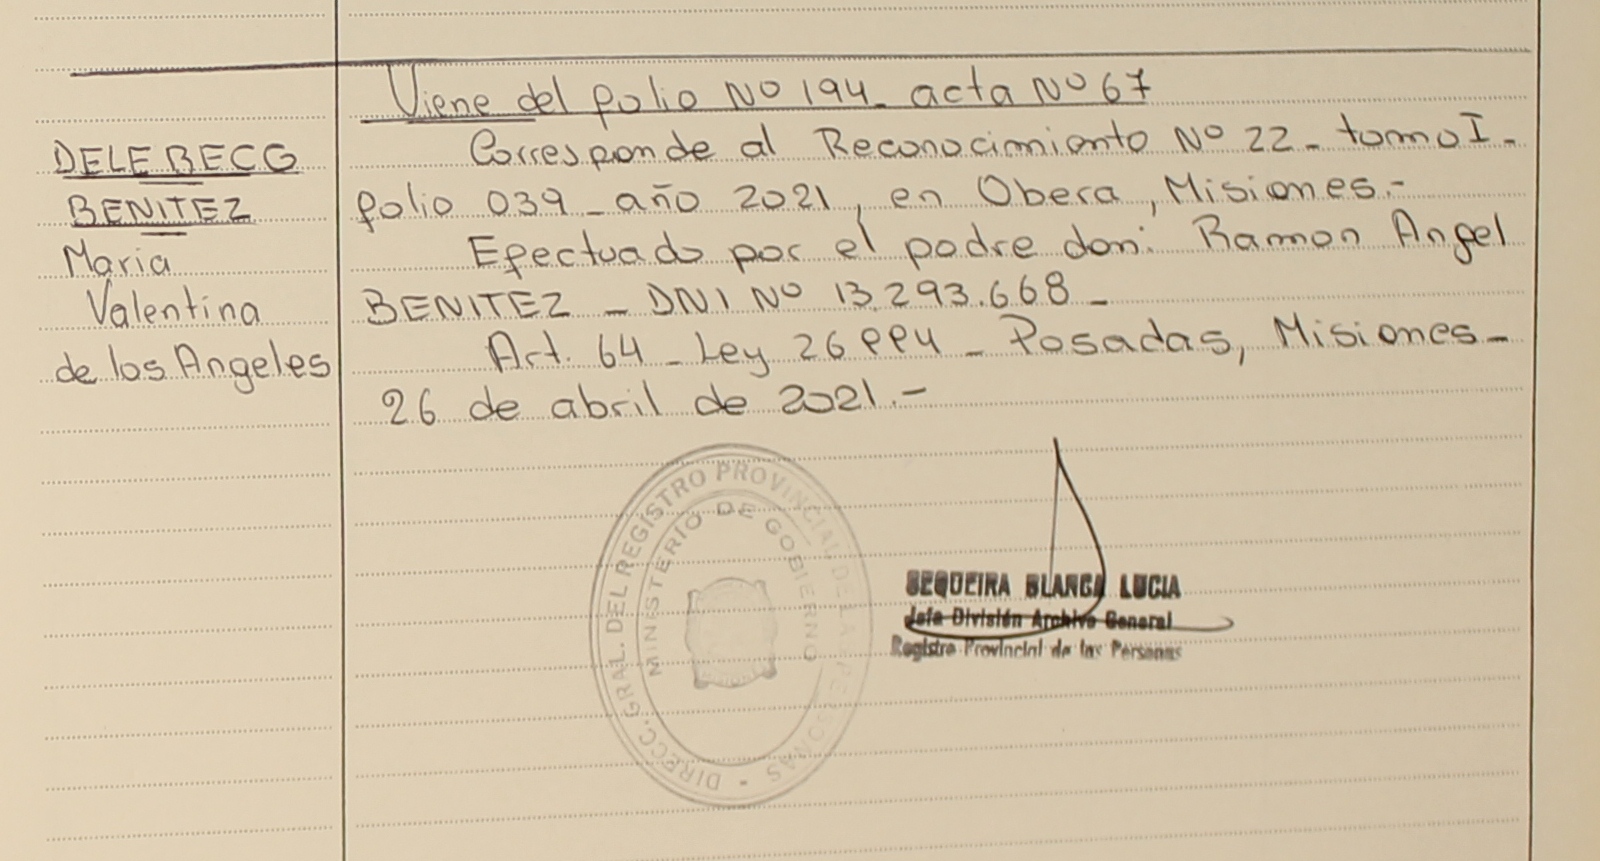 Viene del folio Nº 194 - acta Nº 67
DELEBECG
BENITEZ
Maria
Valentina
de los Angeles
Corresponde al Reconocimiento Nº 22 - tomo I -
folio 039 - año 2021, en Obera, Misiones.-
Efectuado por el padre don: Ramon Angel
BENITEZ - DNI Nº 13.293.668 -
Art. 64 - Ley 26994 - Posadas, Misiones -
26 de abril de 2021.-
DIRECC. GRAL. DEL REGISTRO PROVINCIAL DE LAS PERSONAS -
MINISTERIO DE GOBIERNO
SEQUEIRA BLANCA LUCIA
Jefa División Archivo General
Registro Provincial de las Personas